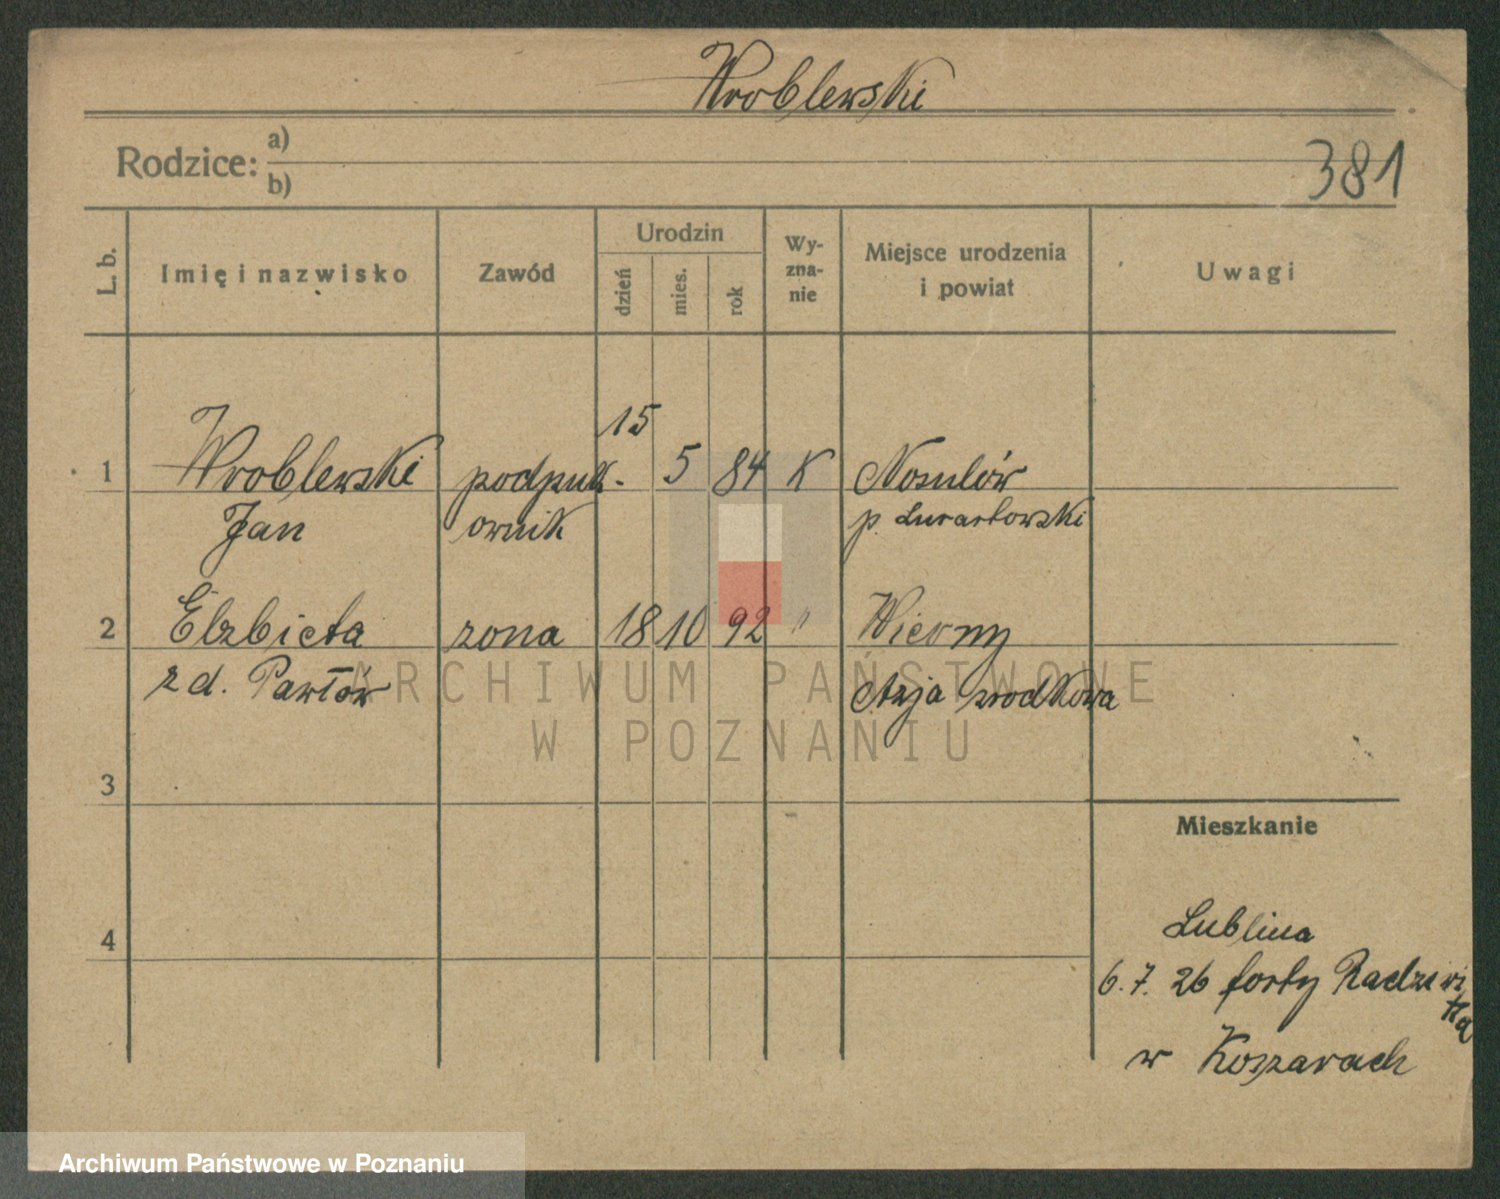 Wroblewski
Rodzice: a)
b)
381
L. b. Imię i nazwisko Zawód Urodzin dzień mies. rok Wy-zna-nie Miejsce urodzenia i powiat Uwagi
15
1 Wroblewski podpułk- 5 84 K Nosulów
Jan ownik p. Lurartowski
2 Elzbieta zona 18 10 92 " Wierny
z d. Pawłów Azja srodkowa
3
Mieszkanie
4
Lublina
6.7. 26 forty Radziwi
łła
w Koszarach
ARCHIWUM PAŃSTWOWE
W POZNANIU
Archiwum Państwowe w Poznaniu